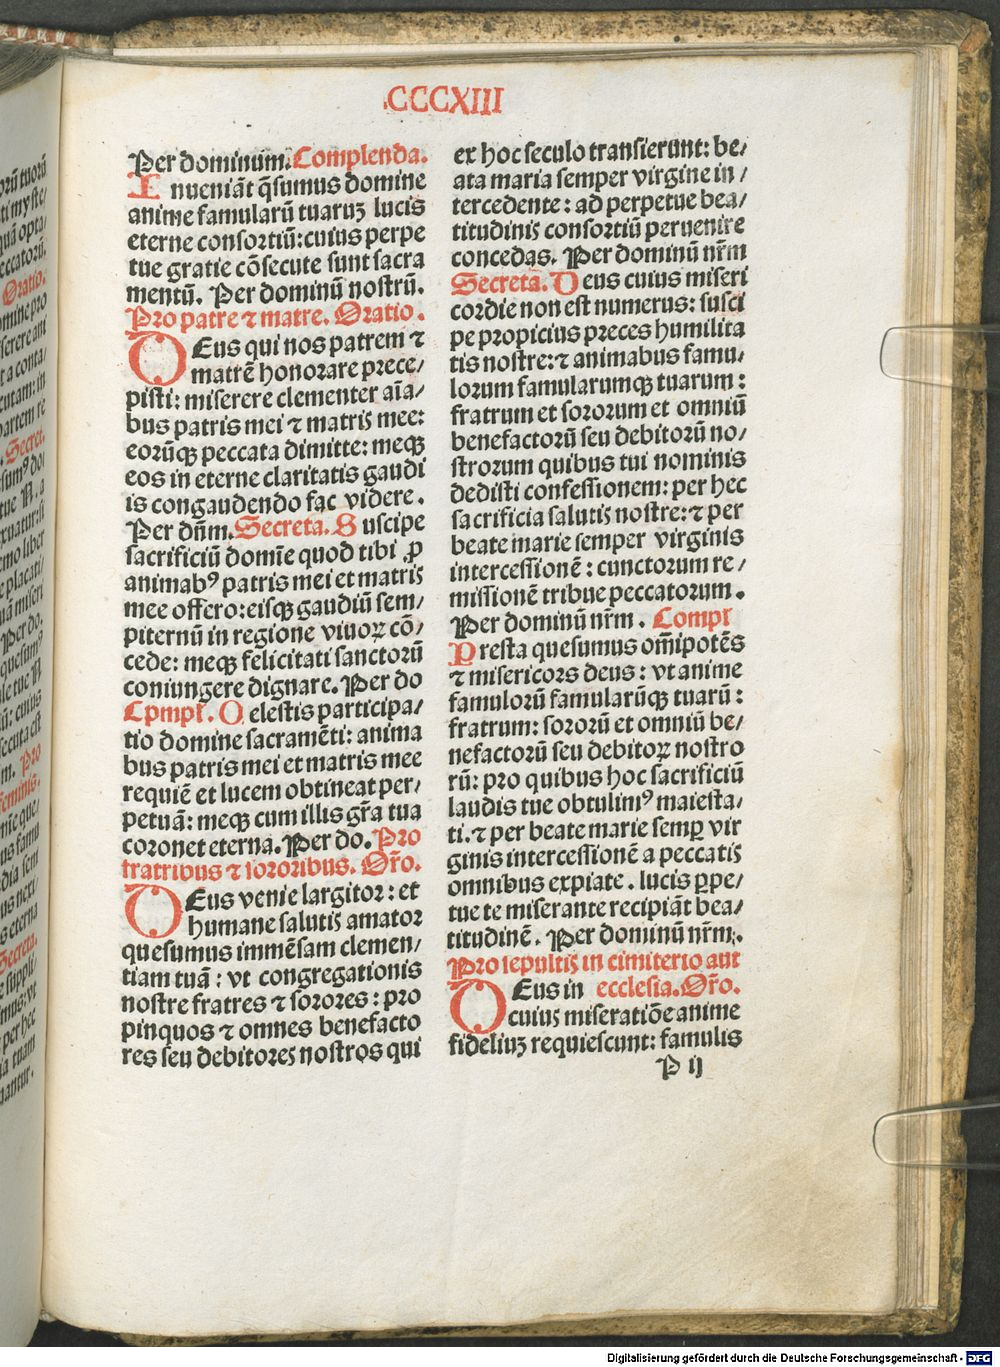 CCCXIII
Per dominum. Complenda.
Inueniãt q̃sumus domine
anime famularũ tuaruꝫ lucis
eterne consortiũ: cuius perpe
tue gratie cõsecute sunt sacra
mentũ. Per dominũ nostrũ.
Pro patre ⁊ matre. Oratio.
DEus qui nos patrem ⁊
matrẽ honorare prece⸗
pisti: miserere clementer aĩa⸗
bus patris mei ⁊ matris mee:
eorũqꝫ peccata dimitte: meqꝫ
eos in eterne claritatis gaudi
is congaudendo fac videre.
Per dñm. Secreta. Suscipe
sacrificiũ domĩe quod tibi ꝓ
animabꝰ patris mei et matris
mee offero: eisqꝫ gaudiũ sem⸗
piternũ in regione viuoꝝ cõ⸗
cede: meqꝫ felicitati sanctorũ
coniungere dignare. Per do
Cpmpꝉ. Celestis participa⸗
tio domine sacramẽti: anima
bus patris mei et matris mee
requiẽ et lucem obtineat per⸗
petuã: meqꝫ cum illis gr̃a tua
coronet eterna. Per do. Pro
fratribus ⁊ sororibus. Or̃o.
DEus venie largitor: et
humane salutis amator
quesumus immẽsam clemen⸗
tiam tuã: vt congregationis
nostre fratres ⁊ sorores: pro
pinquos ⁊ omnes benefacto
res seu debitores nostros qui
ex hoc seculo transierunt: be⸗
ata maria semper virgine in⸗
tercedente: ad perpetue bea⸗
titudinis consortiũ peruenire
concedas. Per dominũ nr̃m
Secreta. Deus cuius miseri
cordie non est numerus: susci
pe propicius preces humilita
tis nostre: ⁊ animabus famu⸗
lorum famularumqꝫ tuarum:
fratrum et sororum et omniũ
benefactorũ seu debitorũ no⸗
strorum quibus tui nominis
dedisti confessionem: per hec
sacrificia salutis nostre: ⁊ per
beate marie semper virginis
intercessionẽ: cunctorum re⸗
missionẽ tribue peccatorum.
Per dominũ nr̃m. Compꝉ
Presta quesumus om̃ipotẽs
⁊ misericors deus: vt anime
famulorũ famularũqꝫ tuarũ:
fratrum: sororũ et omniũ be⸗
nefactorũ seu debitoꝝ nostro
rũ: pro quibus hoc sacrificiũ
laudis tue obtulimꝰ maiesta⸗
ti. ⁊ per beate marie semꝑ vir
ginis intercessionẽ a peccatis
omnibus expiate. lucis ꝑpe⸗
tue te miserante recipiãt bea⸗
titudinẽ. Per dominũ nr̃m.
Pro sepultis in cimiterio aut
DEus in ecclesia. Or̃o.
cuius miseratiõe anime
fideliuꝫ requiescunt: famulis
P ij
Digitalisierung gefördert durch die Deutsche Forschungsgemeinschaft - DFG